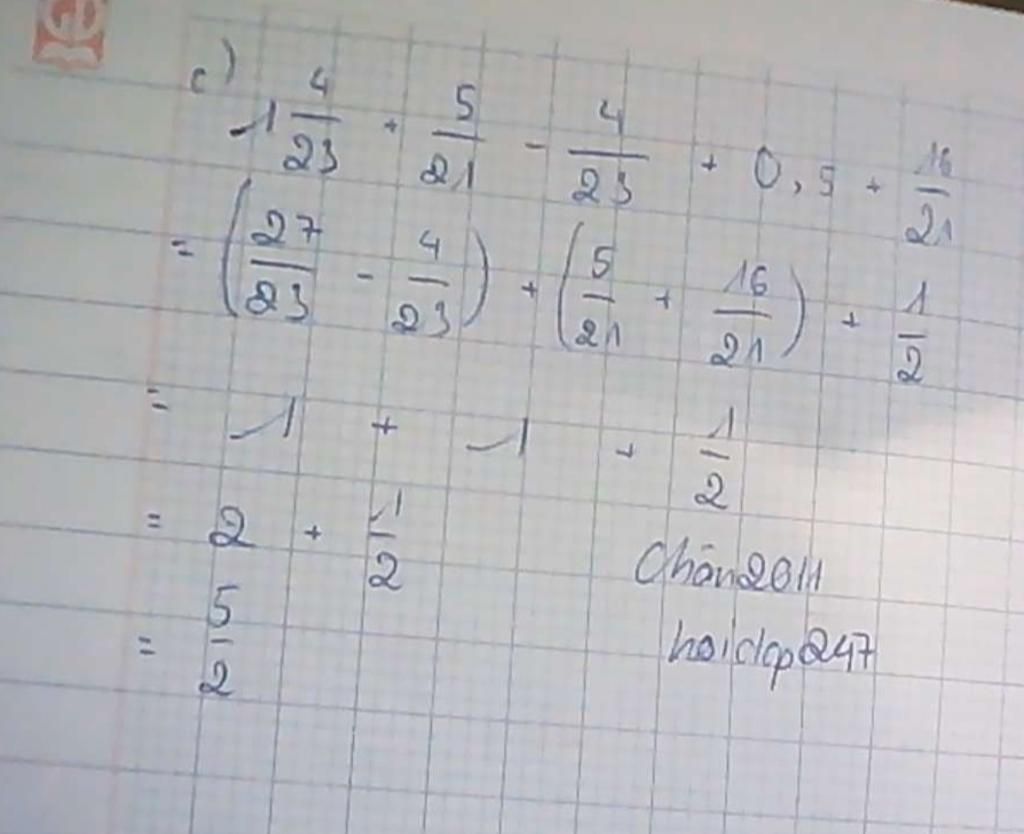 c)
1 4/23 + 5/21 - 4/23 + 0,5 + 16/21
= (27/23 - 4/23) + (5/21 + 16/21) + 1/2
= 1 + 1 + 1/2
= 2 + 1/2
= 5/2
hoidap247